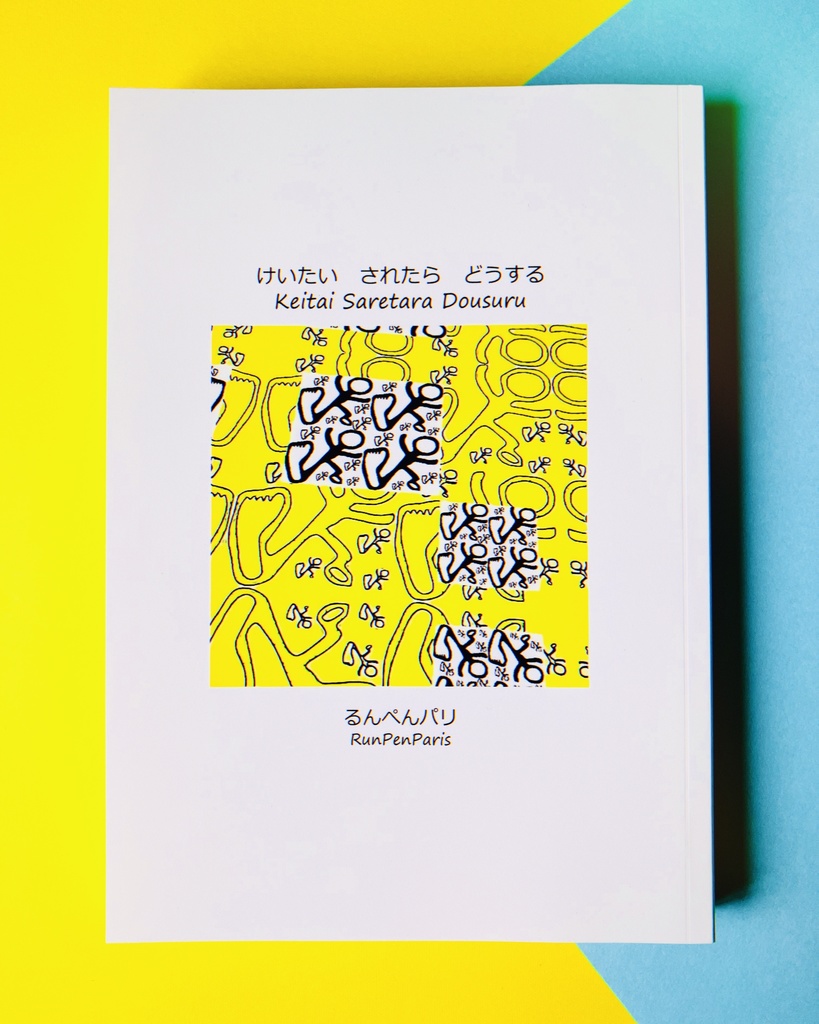 けいたい　されたら　どうする
Keitai Saretara Dousuru
るんぺんパリ
RunPenParis